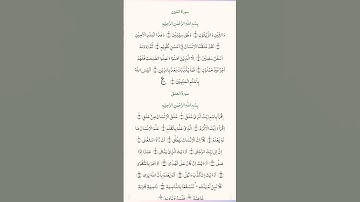 سورة التين
بِسْمِ اللَّهِ الرَّحْمَٰنِ الرَّحِيمِ
وَالتِّينِ وَالزَّيْتُونِ وَطُورِ سِينِينَ وَهَٰذَا الْبَلَدِ الْأَمِينِ
لَقَدْ خَلَقْنَا الْإِنْسَانَ فِي أَحْسَنِ تَقْوِيمٍ ثُمَّ رَدَدْنَاهُ
أَسْفَلَ سَافِلِينَ إِلَّا الَّذِينَ آمَنُوا وَعَمِلُوا الصَّالِحَاتِ فَلَهُمْ
أَجْرٌ غَيْرُ مَمْنُونٍ فَمَا يُكَذِّبُكَ بَعْدُ بِالدِّينِ أَلَيْسَ اللَّهُ
بِأَحْكَمِ الْحَاكِمِينَ
سورة العلق
بِسْمِ اللَّهِ الرَّحْمَٰنِ الرَّحِيمِ
اقْرَأْ بِاسْمِ رَبِّكَ الَّذِي خَلَقَ خَلَقَ الْإِنْسَانَ مِنْ عَلَقٍ
اقْرَأْ وَرَبُّكَ الْأَكْرَمُ الَّذِي عَلَّمَ بِالْقَلَمِ عَلَّمَ الْإِنْسَانَ مَا
لَمْ يَعْلَمْ كَلَّا إِنَّ الْإِنْسَانَ لَيَطْغَىٰ أَنْ رَآهُ اسْتَغْنَىٰ
إِنَّ إِلَىٰ رَبِّكَ الرُّجْعَىٰ أَرَأَيْتَ الَّذِي يَنْهَىٰ عَبْدًا إِذَا
صَلَّىٰ أَرَأَيْتَ إِنْ كَانَ عَلَى الْهُدَىٰ أَوْ أَمَرَ بِالتَّقْوَىٰ
أَرَأَيْتَ إِنْ كَذَّبَ وَتَوَلَّىٰ أَلَمْ يَعْلَمْ بِأَنَّ اللَّهَ يَرَىٰ
كَلَّا لَئِنْ لَمْ يَنْتَهِ لَنَسْفَعًا بِالنَّاصِيَةِ نَاصِيَةٍ كَاذِبَةٍ